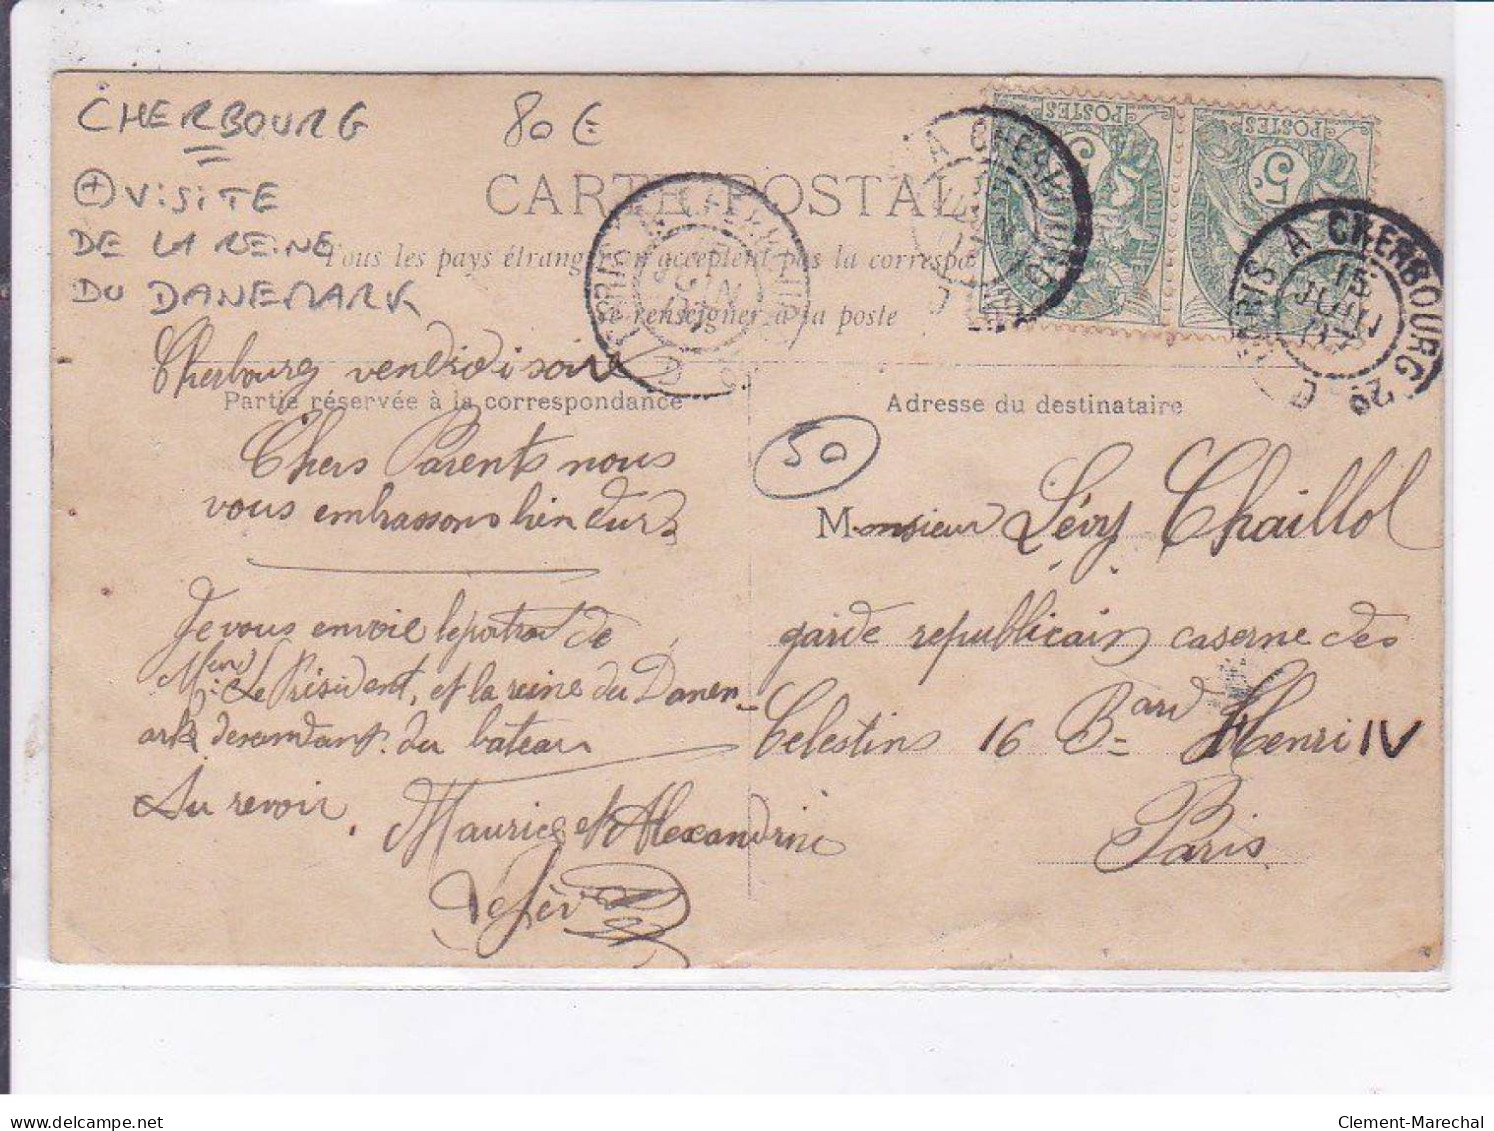 CHERBOURG
80 €
+ VISITE
DE LA REINE
DU DANEMARK
CARTE POSTALE
Tous les pays étrangers n'acceptent pas la correspo
Se renseigner à la poste
POSTES
5c
POSTES
5c
A CHERBOURG
PARIS A CHERBOURG
JUIN
PARIS A CHERBOURG 2°
15
JUIN
07
Cherbourg vendredi soir
Partie réservée à la correspondance
Adresse du destinataire
50
Chers Parents nous
vous embrassons bien durs
Monsieur Lévy Chaillol
Je vous envoie le portrait de
garde republicain caserne des
Le Président, et la reine du Danem-
ark descendant du bateau
Celestins 16 Bard Henri IV
Au revoir.
Maurice et Alexandrine
Paris
Lefèv
delcampe.net
Clement-Marechal